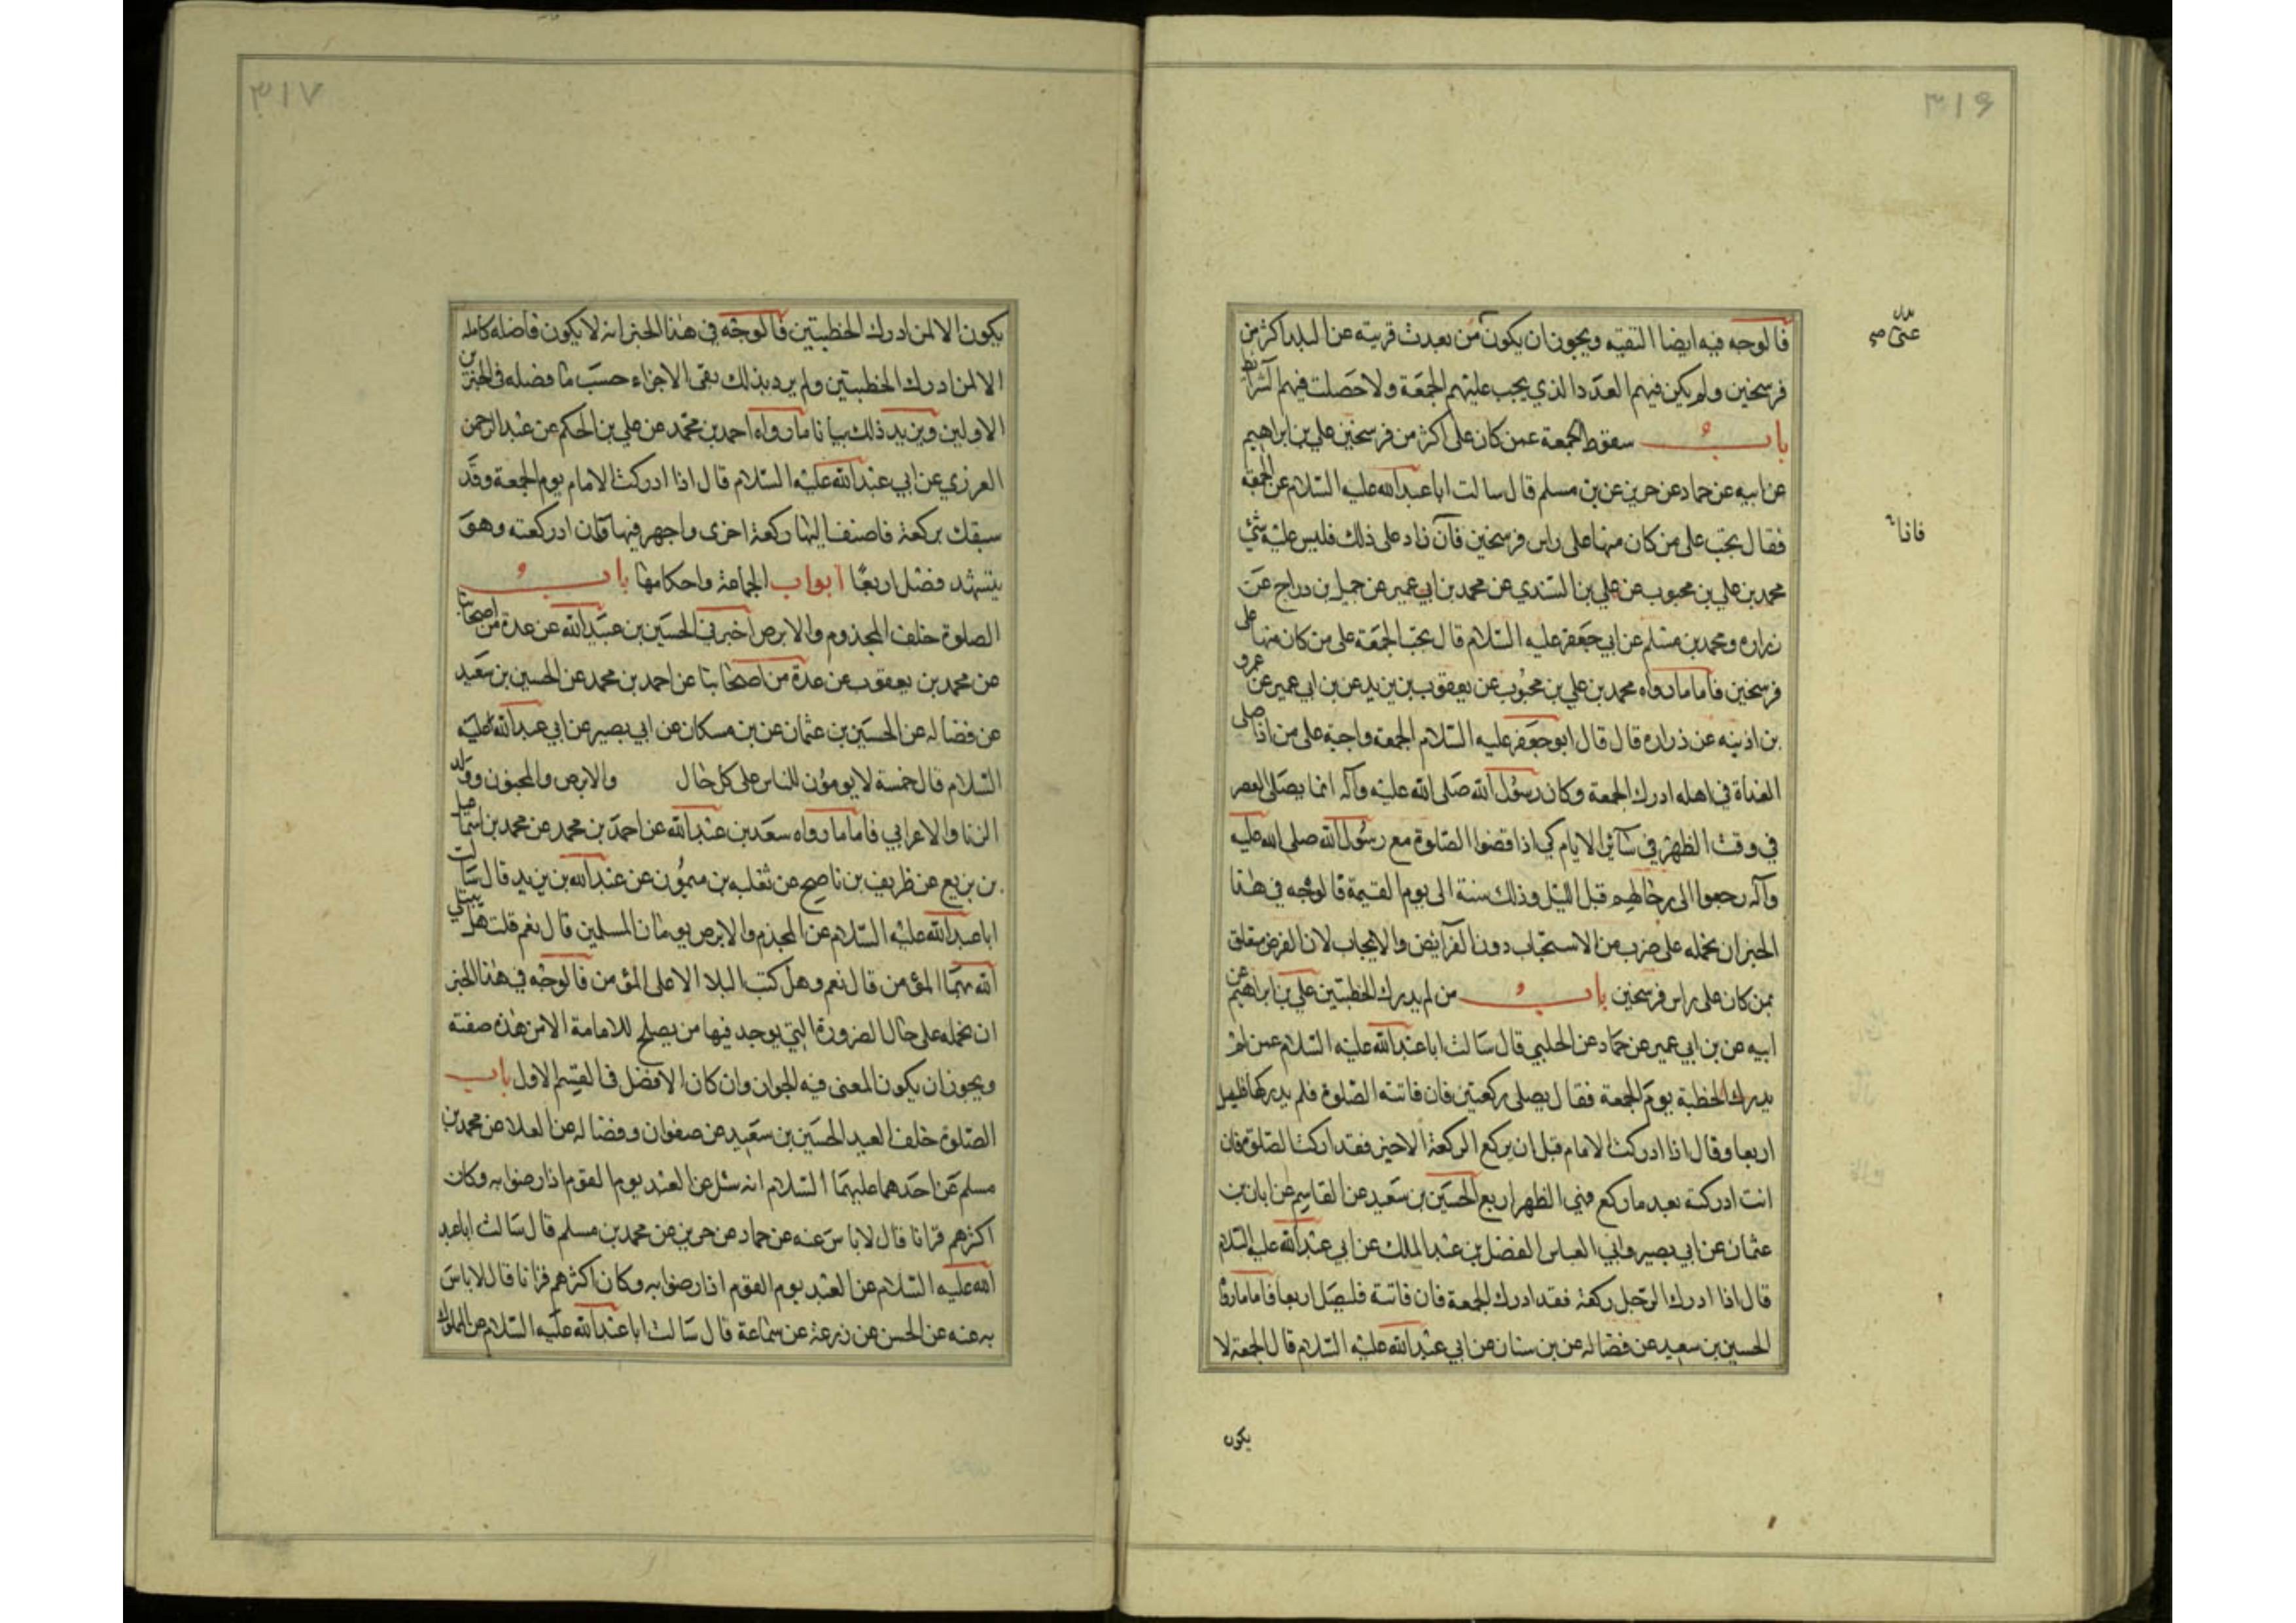 ٣١٦
فالوجه فيه ايضا التقيه ويجوز ان يكون من بعدت قريته عن البلد اكثر من
عنى صح
فرسخين ولم يكن فيهم العدد الذي يجب عليهم الجمعة ولا حصلت فيهم الشرايط
باب سقوط الجمعة عمن كان على اكثر من فرسخين علي بن ابراهيم
عن ابيه عن حماد عن حريز عن بن مسلم قال سالت ابا عبد الله عليه السلام عن الجمعة
فقال تجب على من كان منها على راس فرسخين فان زاد على ذلك فليس عليه شئ
فاذا
محمد بن علي بن محبوب عن علي بن السندي عن محمد بن ابي عمير عن جميل بن دراج عن
زراره ومحمد بن مسلم عن ابي جعفر عليه السلام قال تجب الجمعة على من كان منها على
فرسخين فاما ما رواه محمد بن علي بن محبوب عن يعقوب بن يزيد عن بن ابي عمير عن عمرو
بن اذينه عن زراره قال قال ابو جعفر عليه السلام الجمعة واجبة على من اذا صلى
الغداة في اهله ادرك الجمعة وكان رسول الله صلى الله عليه وآله انما يصلى العصر
في وقت الظهر في سائر الايام كي اذا قضوا الصلوة مع رسول الله صلى الله عليه
وآله رجعوا الى رحالهم قبل الليل وذلك سنة الى يوم القيمة فالوجه في هذا
الخبر ان نحمله على ضرب من الاستحباب دون الفرايض والايجاب لان الفرض متعلق
بمن كان على راس فرسخين باب من لم يدرك الخطبتين علي بن ابراهيم عن
ابيه عن بن ابي عمير عن حماد عن الحلبي قال سالت ابا عبد الله عليه السلام عمن لم
يدرك الخطبة يوم الجمعة فقال يصلى ركعتين فان فاتته الصلوة فلم يدركها فليصل
اربعا وقال اذا ادركت الامام قبل ان يركع الركعة الاخيرة فقد ادركت الصلوة فان
انت ادركته بعد ما ركع فهي الظهر اربع الحسين بن سعيد عن القاسم عن ابان بن
عثمان عن ابي بصير وابي العباس الفضل بن عبد الملك عن ابي عبد الله عليه السلام
قال اذا ادرك الرجل ركعة فقد ادرك الجمعة فان فاتته فليصل اربعا فاما ما رواه
الحسين بن سعيد عن فضاله عن بن سنان عن ابي عبد الله عليه السلام قال الجمعة لا
يكون
٣١٧
يكون الا لمن ادرك الخطبتين فالوجه في هذا الخبر انه لا يكون فاضله كامله
الا لمن ادرك الخطبتين ولم يرد بذلك نفى الاجزاء حسب ما فضله فى الخبرين
الاولين ويزيد ذلك بيانا ما رواه احمد بن محمد عن علي بن الحكم عن عبد الرحمن
العرزمي عن ابي عبد الله عليه السلام قال اذا ادركت الامام يوم الجمعة وقد
سبقك بركعة فاضف اليها ركعة اخرى واجهر فيها فان ادركته وهو
يتشهد فصل اربعا ابواب الجماعة واحكامها باب
الصلوة خلف المجذوم والابرص اخبرنى الحسين بن عبيد الله عن عدة من اصحابنا
عن محمد بن يعقوب عن عدة من اصحابنا عن احمد بن محمد عن الحسين بن سعيد
عن فضاله عن الحسين بن عثمان عن بن مسكان عن ابي بصير عن ابي عبد الله عليه
السلام قال خمسة لا يومون للناس على كل حال والابرص والمجنون وولد
الزنا والاعرابي فاما ما رواه سعد بن عبد الله عن احمد بن محمد عن محمد بن اسماعيل
بن بزيع عن ظريف بن ناصح عن ثعلبه بن ميمون عن عبد الله بن يزيد قال سالت
ابا عبد الله عليه السلام عن المجذم والابرص يومان المسلمين قال نعم قلت هل يبتلي
الله بهما المؤمن قال نعم وهل كتب البلا الا على المؤمن فالوجه في هذا الخبر
ان نحمله على حال الضرورة التي يوجد فيها من يصلح للامامة الا من هذه صفته
ويجوز ان يكون المعنى فيه الجواز وان كان الافضل فى القسم الاول باب
الصلوة خلف العبد الحسين بن سعيد عن صفوان وفضاله عن العلا عن محمد بن
مسلم عن احدهما عليهما السلام انه سئل عن العبد يوم القوم اذا رضوا به وكان
اكثرهم قرانا قال لا باس عنه عن حماد عن حريز عن محمد بن مسلم قال سالت ابا عبد
الله عليه السلام عن العبد يوم القوم اذا رضوا به وكان اكثرهم قرانا قال لا باس
به عنه عن الحسن عن زرعة عن سماعة قال سالت ابا عبد الله عليه السلام عن المملوك